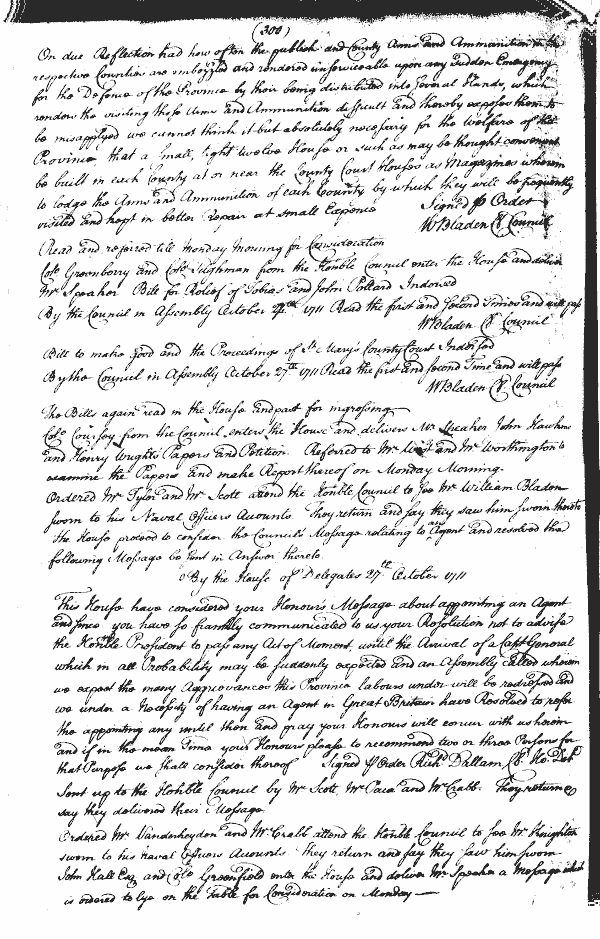 (300)
On due Reflection had how often the publick and County Arms and Ammunition in the
respective Counties are imbezzled and rendered unserviceable upon any Sudden Emergency
for the Defence of the Province by their being distributed into several Hands, which
renders the visiting those Arms and Ammunition difficult and thereby exposes them to
be misapplyed we cannot think it but absolutely necessary for the Welfare of this
Province that a small, tight twelve House or such as may be thought convenient
be built in each County at or near the County Court Houses as Magazines wherein
to lodge the Arms and Ammunition of each County by which they will be frequently
visited and kept in better Repair at small Expence Signed p Order
W Bladen Cl Council
Read and referred till Monday Morning for Consideration
Colo Greenberry and Colo Tilghman from the Honble Council enter the House and deliver
Mr Speaker Bill for Relief of Tobias and John Pollard Indorsed
By the Council in Assembly October 27th 1711 Read the first and second Times and will pass
W Bladen Cl Council
Bill to make good and the Proceedings of St Mary's County Court Indorsed
By the Council in Assembly October 27th 1711 Read the first and second Time and will pass
W Bladen Cl Council
The Bills again read in the House and past for ingrossing
Colo Coursey from the Council enters the House and delivers Mr Speaker John Hawkins
and Henry Wrights Papers and Petition. Referred to Mr and Mr Worthington to
examine the Papers and make Report thereof on Monday Morning.
Ordered Mr Tyler and Mr Scott attend the Honble Council to see Mr William Bladen
sworn to his Naval Officers Accounts. They return and say they saw him sworn thereto
The House proceed to consider the Council's Message relating to an Agent and resolved the
following Message be sent in Answer thereto
By the House of Delegates 27th October 1711
This House have considered your Honours Message about appointing an Agent
and since you have so frankly communicated to us your Resolution not to advise
the Honble President to pass any Act of Moment, until the Arrival of a Capt General
which in all Probability may be suddenly expected and an Assembly called wherein
we expect the many Aggrievances this Province labours under will be redressed and
we under a Necessity of having an Agent in Great Britain have Resolved to refer
the appointing any until then and pray your Honours will concur with us herein
and if in the mean Time your Honours please to recommend two or three Persons for
that Purpose we shall consider thereof Signed p Order Richd Dallam Cl Ho. Del
Sent up to the Honble Council by Mr Scott Mr Paca and Mr Crabb. They return &
say they delivered their Message
Ordered Mr Vanderheyden and Mr Crabb attend the Honble Council to see Mr Knighton
sworn to his naval Officers Accounts They return and say they saw him sworn
John Hall Esq and Colo Greenfield enter the House and deliver Mr Speaker a Message which
is ordered to lye on the Table for Consideration on Monday